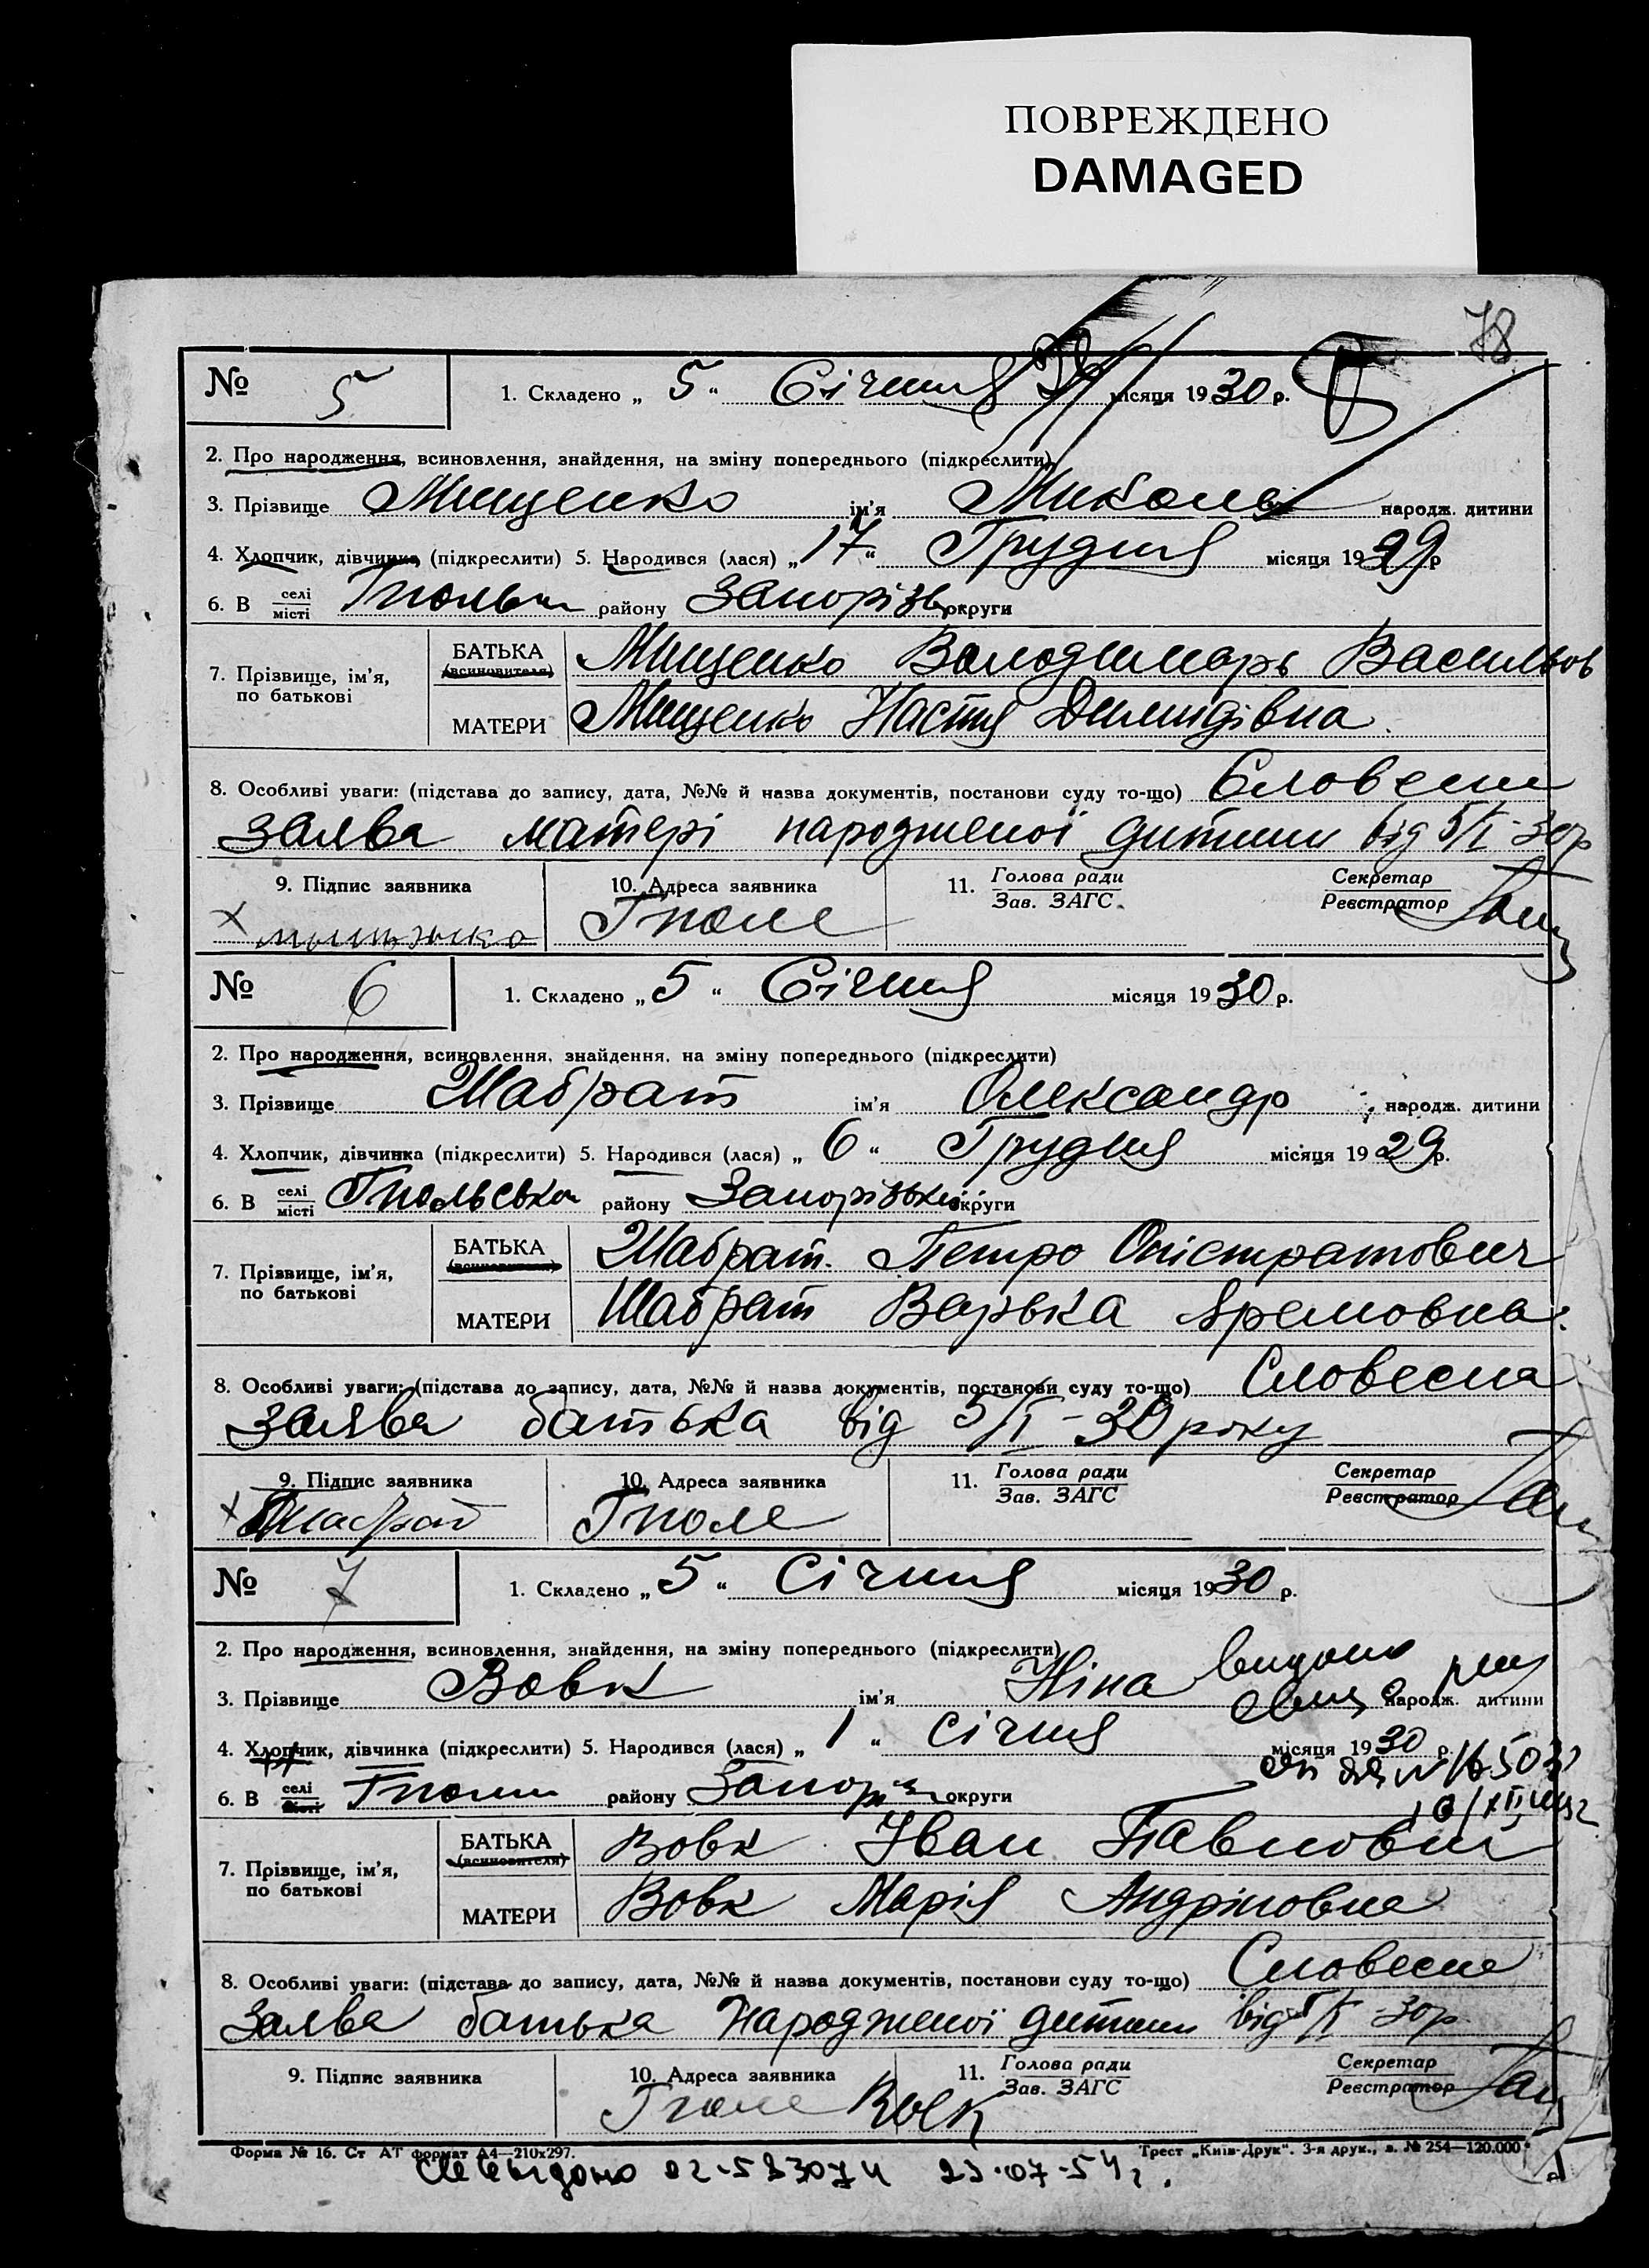 ПОВРЕЖДЕНО
DAMAGED
78
№ 5
1. Складено „ 5 “ Січня місяця 1930 р.
2. Про народження, всиновлення, знайдення, на зміну попереднього (підкреслити)
3. Прізвище Мищенко ім’я Микола народж. дитини
4. Хлопчик, дівчинка (підкреслити) 5. Народився (лася) „ 17 “ Грудня місяця 1929 р
6. В селі місті району округи
7. Прізвище, ім’я, по батькові
БАТЬКА (всиновителя) Мищенко Володимарь Васильов
МАТЕРИ Мищенко Настя Демидівна.
8. Особливі уваги: (підстава до запису, дата, №№ й назва документів, постанови суду то-що) Словесна
заява матері народженої дитини від 5/I-30р
9. Підпис заявника 10. Адреса заявника 11. Голова ради Зав. ЗАГС. Секретар Реєстратор
Гполе
№ 6
1. Складено „ 5 “ Січня місяця 1930 р.
2. Про народження, всиновлення, знайдення, на зміну попереднього (підкреслити)
3. Прізвище Шабрат ім’я Олександр народж. дитини
4. Хлопчик, дівчинка (підкреслити) 5. Народився (лася) „ 6 “ Грудня місяця 1929 р.
6. В селі місті Гпольська району Запорізької округи
7. Прізвище, ім’я, по батькові
БАТЬКА (всиновителя) Шабрат. Петро Опістратович
МАТЕРИ Шабрат Варька Яремовна.
8. Особливі уваги: (підстава до запису, дата, №№ й назва документів, постанови суду то-що) Словесна
заява батька від 5/I-30 року
9. Підпис заявника 10. Адреса заявника 11. Голова ради Зав. ЗАГС Секретар Реєстратор
Шабрат Гполе
№ 7
1. Складено „ 5 “ Січня місяця 1930 р.
2. Про народження, всиновлення, знайдення, на зміну попереднього (підкреслити)
3. Прізвище Вовк ім’я Ніна народж. дитини
4. Хлопчик, дівчинка (підкреслити) 5. Народився (лася) „ 1 “ Січня місяця 1930 р.
6. В селі місті району округи
7. Прізвище, ім’я, по батькові
БАТЬКА (всиновителя) Вовк Іван Павлович
МАТЕРИ Вовк Марія Андріївна
8. Особливі уваги: (підстава до запису, дата, №№ й назва документів, постанови суду то-що) Словесна
Заява батька народженої дитини від 5/I-30р.
9. Підпис заявника 10. Адреса заявника 11. Голова ради Зав. ЗАГС Секретар Реєстратор
Гполе
Форма № 16. Ст АТ формат А4—210x297. Трест „Київ-Друк“. 3-я друк., з. № 254—120.000